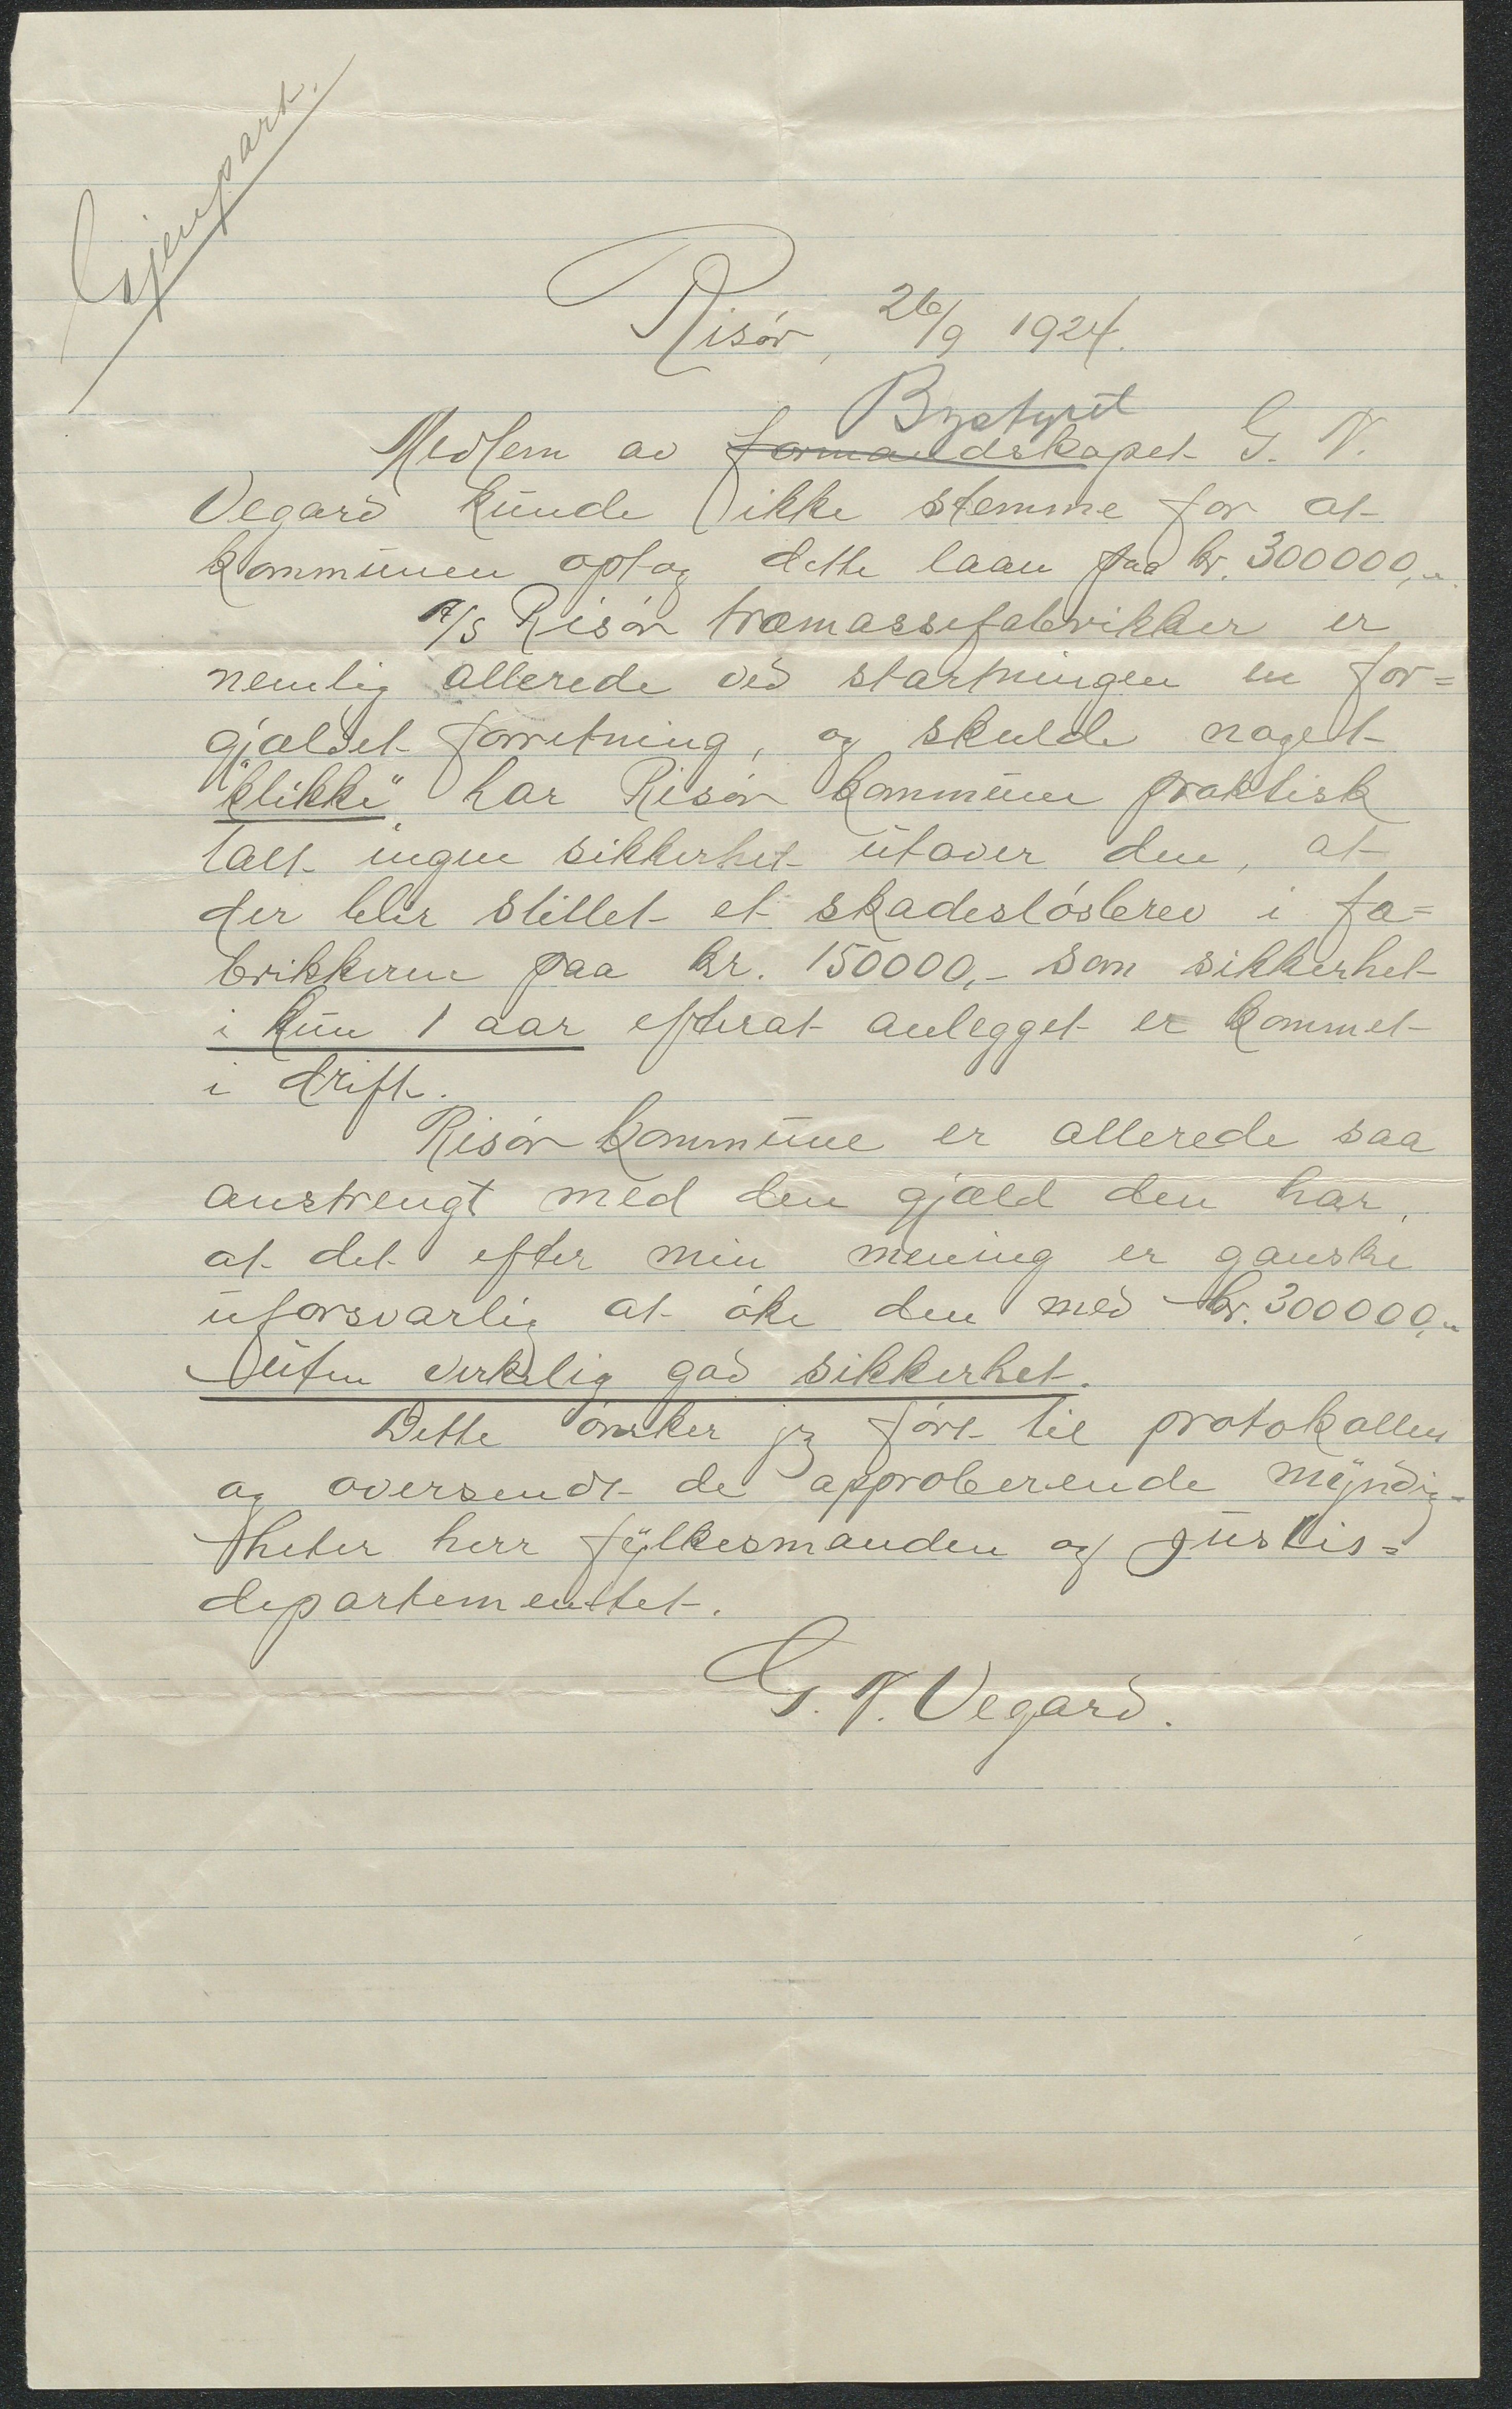 Gjenpart.
Risør, 26/9 1924.
Bystyret
Medlem av formandskapet G. N.
Vegard kunde ikke stemme for at
kommunen optog dette laan paa kr. 300000,-
A/S Risør træmassefabrikker er
nemlig allerede ved startningen en for=
gjældet forretning, og skulde noget
"klikke", har Risør kommune praktisk
talt ingen sikkerhet utover den, at
der blir stillet et skadesløsbrev i fa=
brikkerne paa kr. 150000,- som sikkerhet
i kun 1 aar efterat anlegget er kommet
i drift.
Risør kommune er allerede saa
anstrengt med den gjæld den har,
at det efter min mening er ganske
uforsvarlig at øke den med kr. 300000,-
uten virkelig god sikkerhet.
Dette ønsker jeg ført til protokollen
og oversendt de approberende myndig-
heter herr fylkesmanden og Justis=
departementet.
G. N. Vegard.